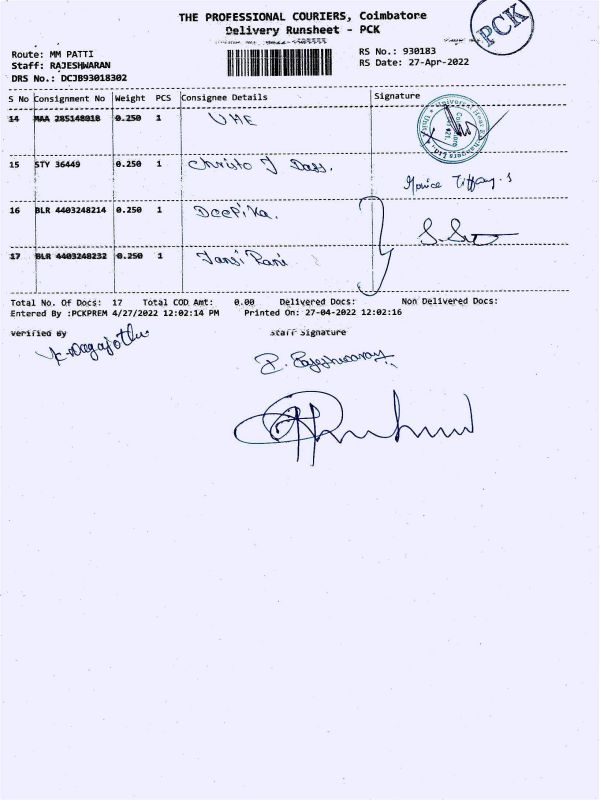 THE PROFESSIONAL COURIERS, Coimbatore
Delivery Runsheet - PCK
PCK
Route: MM PATTI
Staff: RAJESHWARAN
DRS No.: DCJB93018302
RS No.: 930183
RS Date: 27-Apr-2022
S No Consignment No Weight PCS Consignee Details Signature
14 MAA 285148018 0.250 1 UME
15 STY 36449 0.250 1 Christo J Dass.
16 BLR 4403248214 0.250 1 Deepika.
17 BLR 4403248232 0.250 1 Jansi Rani
Total No. Of Docs: 17 Total COD Amt: 0.00 Delivered Docs: Non Delivered Docs:
Entered By :PCKPREM 4/27/2022 12:02:14 PM Printed On: 27-04-2022 12:02:16
Verified By Staff Signature